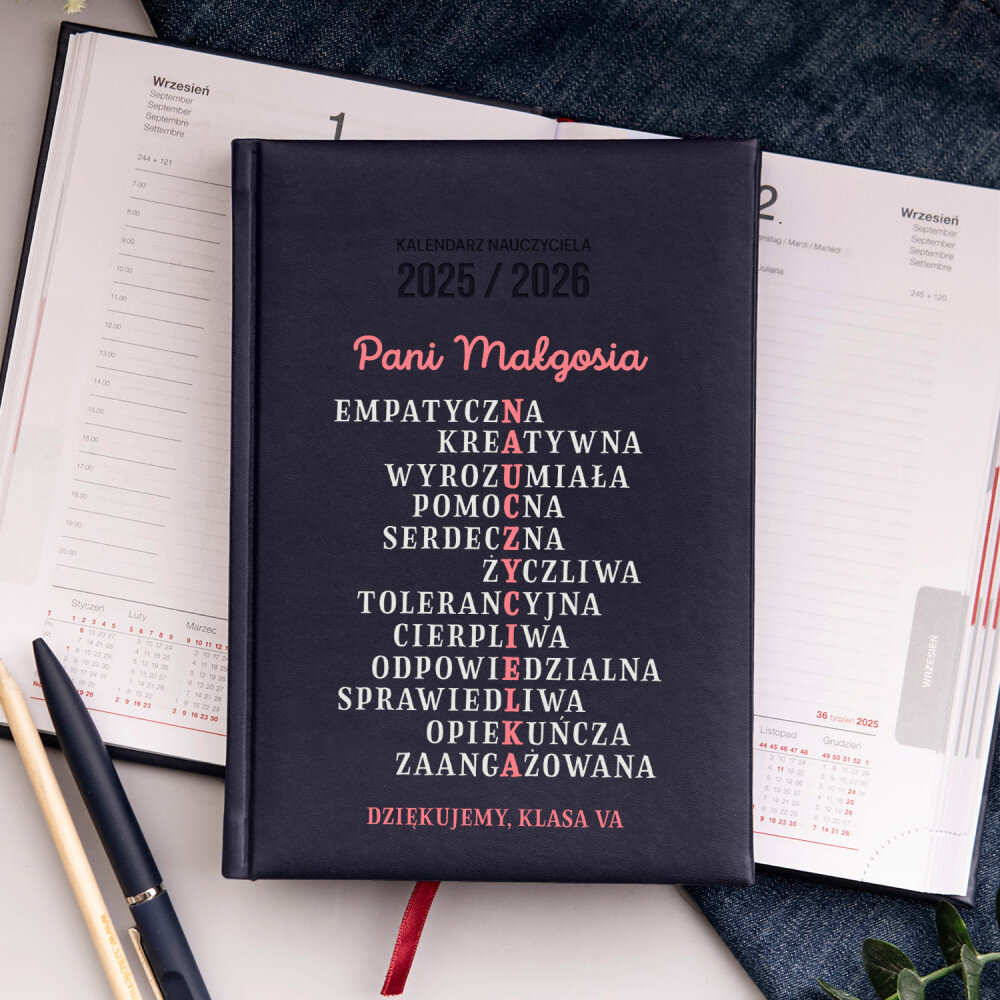 Wrzesień
September
September
Septembre
Settembre
244 + 121
1
7.00
8.00
9.00
10.00
11.00
12.00
13.00
14.00
15.00
16.00
17.00
18.00
19.00
20.00
Styczeń
Luty
Marzec
KALENDARZ NAUCZYCIELA
2025 / 2026
Pani Małgosia
EMPATYCZNA
KREATYWNA
WYROZUMIAŁA
POMOCNA
SERDECZNA
ŻYCZLIWA
TOLERANCYJNA
CIERPLIWA
ODPOWIEDZIALNA
SPRAWIEDLIWA
OPIEKUŃCZA
ZAANGAŻOWANA
DZIĘKUJEMY, KLASA VA
2.
Wrzesień
September
September
Septembre
Settembre
/ Mardi / Martedì
Juliana
245 + 120
WRZESIEŃ
36 tydzień 2025
Listopad
Grudzień
44 45 46 47 48
49 50 51 52 1